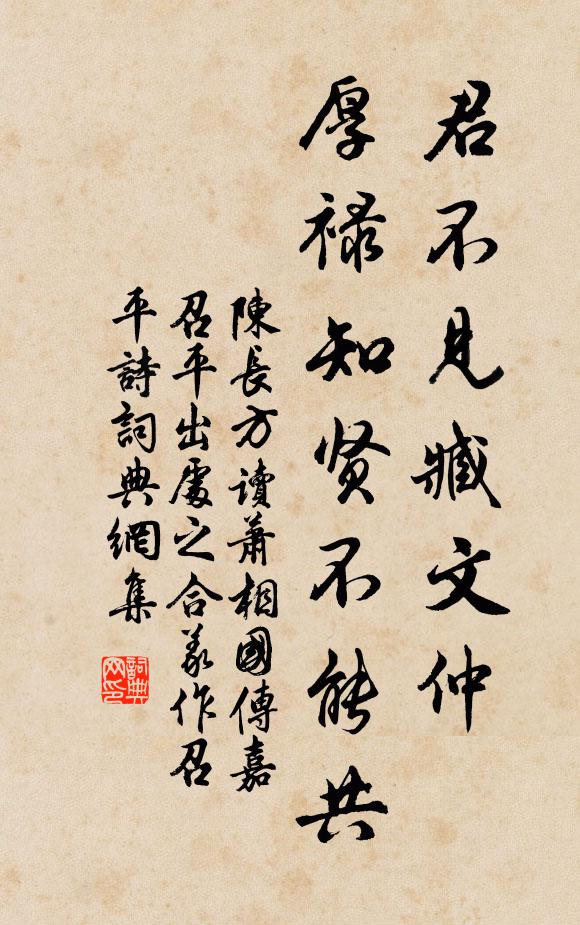 君不見臧文仲
厚祿知贤不能共
陳長方讀蕭相國傳嘉
召平出處之合義作召
平詩詞典網集
詞典
网印